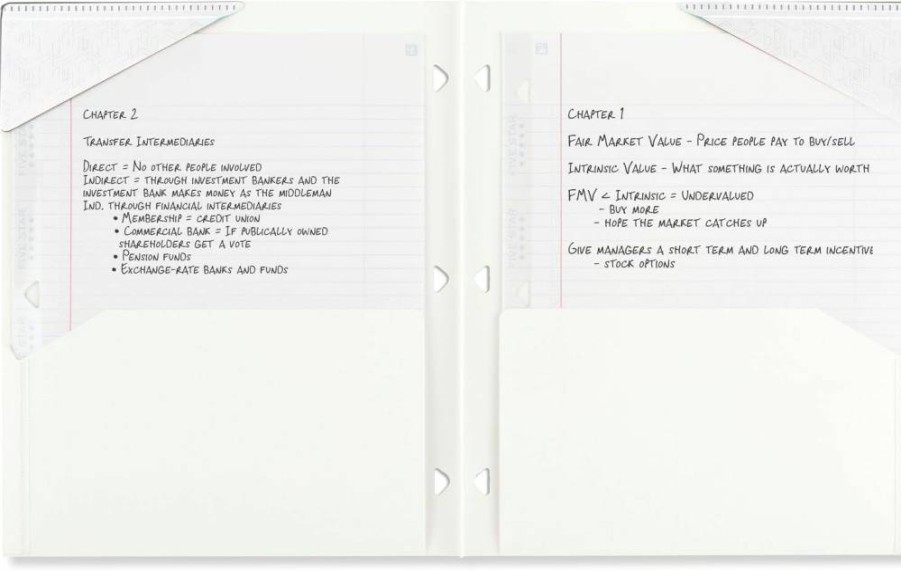 Chapter 2
Transfer Intermediaries
Direct = No other people involved
Indirect = through investment bankers and the
investment bank makes money as the middleman
Ind. through financial intermediaries
• Membership = credit union
• Commercial bank = If publically owned
shareholders get a vote
• Pension funds
• Exchange-rate banks and funds
Chapter 1
Fair Market Value - Price people pay to buy/sell
Intrinsic Value - What something is actually worth
FMV < Intrinsic = Undervalued
- buy more
- hope the market catches up
Give managers a short term and long term incentive
- stock options